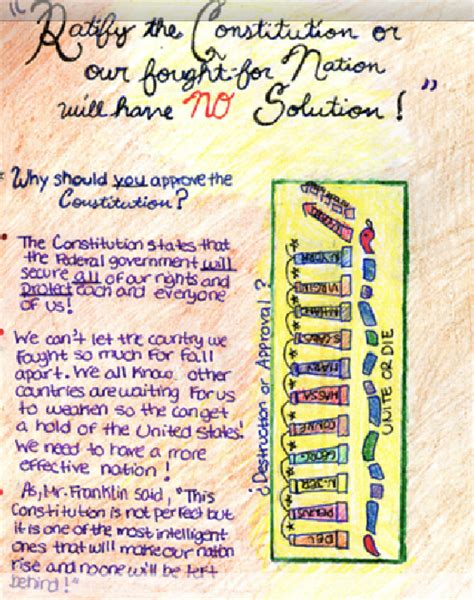 "Ratify the Constitution or
our fought-for Nation
will have NO Solution!"
Why should you approve the
Constitution?
The Constitution states that
the Federal government will
secure all of our rights and
Protect each and everyone
of us!
We can't let the country we
fought so much for fall
apart. We all know other
countries are waiting for us
to weaken so the can get
a hold of the United States!
We need to have a more
effective nation!
As, Mr. Franklin said, "This
Constitution is not perfect but
it is one of the most intelligent
ones that will make our nation
rise and no one will be left
behind!"
¿Destruction or Approval?
VIRGIN
MARY
MASSA
GEORG
N.JER
DEL
UNITE OR DIE